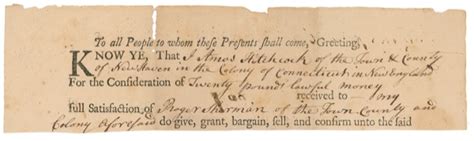 To all People to whom these Presents shall come, Greeting,
KNOW YE, That I Amos Hitchcock of the Town & County
of New Haven in the Colony of Connecticut in New England
For the Consideration of Twenty pounds lawful money
received to my
full Satisfaction of Roger Sherman of the Town County and
Colony Aforesaid do give, grant, bargain, sell, and confirm unto the said